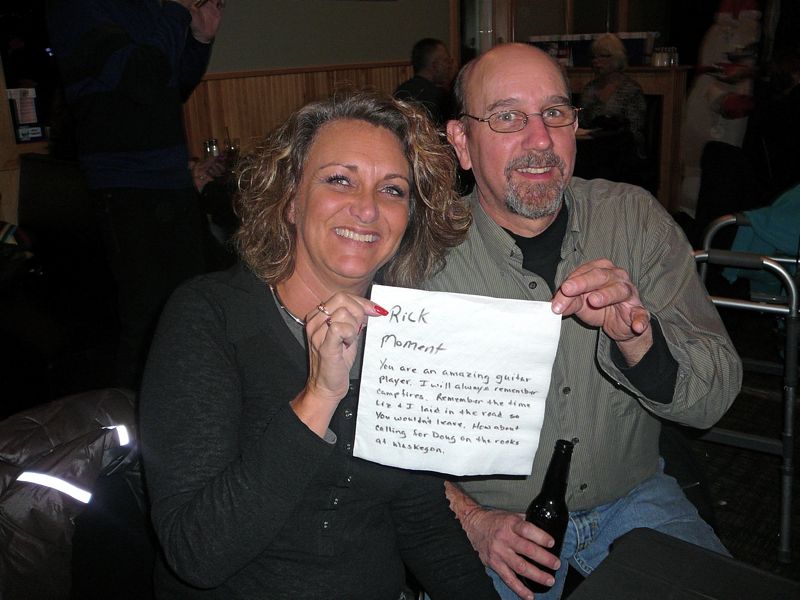 Rick
Moment
You are an amazing guitar
player. I will always remember
campfires. Remember the time
Liz & I laid in the road so
you wouldn't leave. How about
calling for Doug on the rocks
at Muskegon.